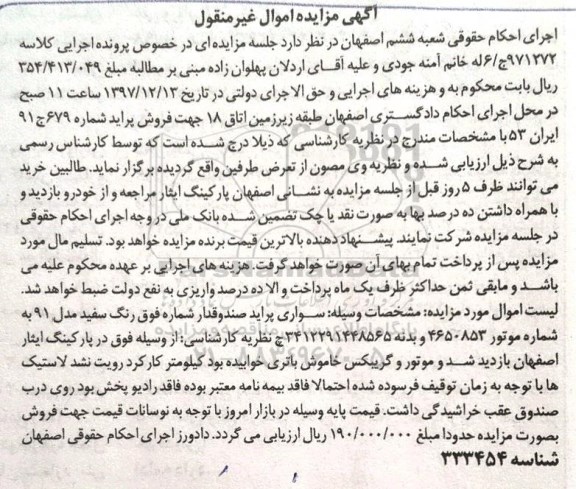 آگهی مزایده اموال غیرمنقول
اجرای احکام حقوقی شعبه ششم اصفهان در نظر دارد جلسه مزایده ای در خصوص پرونده اجرایی کلاسه
۹۷۱۲۷۲ج/۶له خانم آمنه جودی و علیه آقای اردلان پهلوان زاده مبنی بر مطالبه مبلغ ۳۵۴/۴۱۳/۰۴۹
ریال بابت محکوم به و هزینه های اجرایی و حق الاجرای دولتی در تاریخ ۱۳۹۷/۱۲/۱۳ ساعت ۱۱ صبح
در محل اجرای احکام دادگستری اصفهان طبقه زیرزمین اتاق ۱۸ جهت فروش پراید شماره ۶۷۹ج۹۱
ایران ۵۳ با مشخصات مندرج در نظریه کارشناسی که ذیلا درج شده است که توسط کارشناس رسمی
به شرح ذیل ارزیابی شده و نظریه وی مصون از تعرض طرفین واقع گردیده برگزار نماید. طالبین خرید
می توانند ظرف ۵ روز قبل از جلسه مزایده به نشانی اصفهان پارکینگ ایثار مراجعه و از خودرو بازدید و
با همراه داشتن ده درصد بها به صورت نقد یا چک تضمین شده بانک ملی در وجه اجرای احکام حقوقی
در جلسه مزایده شرکت نمایند. پیشنهاد دهنده بالاترین قیمت برنده مزایده خواهد بود. تسلیم مال مورد
مزایده پس از پرداخت تمام بهای آن صورت خواهد گرفت. هزینه های اجرایی بر عهده محکوم علیه می
باشد و مابقی ثمن حداکثر ظرف یک ماه پرداخت و الا ده درصد واریزی به نفع دولت ضبط خواهد شد.
لیست اموال مورد مزایده: مشخصات وسیله: سواری پراید صندوقدار شماره فوق رنگ سفید مدل ۹۱ به
شماره موتور ۴۶۵۰۸۵۳ و بدنه ۳۴۱۲۲۹۱۴۴۸۵۶۵ج نظریه کارشناسی: از وسیله فوق در پارکینگ ایثار
اصفهان بازدید شد و موتور و گریبکس خاموش باتری خوابیده بود کیلومتر کارکرد رویت نشد لاستیک
ها با توجه به زمان توقیف فرسوده شده احتمالا فاقد بیمه نامه معتبر بوده فاقد رادیو پخش بود روی درب
صندوق عقب خراشیدگی داشت. قیمت پایه وسیله در بازار امروز با توجه به نوسانات قیمت جهت فروش
بصورت مزایده حدودا مبلغ ۱۹۰/۰۰۰/۰۰۰ ریال ارزیابی می گردد. دادورز اجرای احکام حقوقی اصفهان
شناسه ۳۳۳۴۵۴